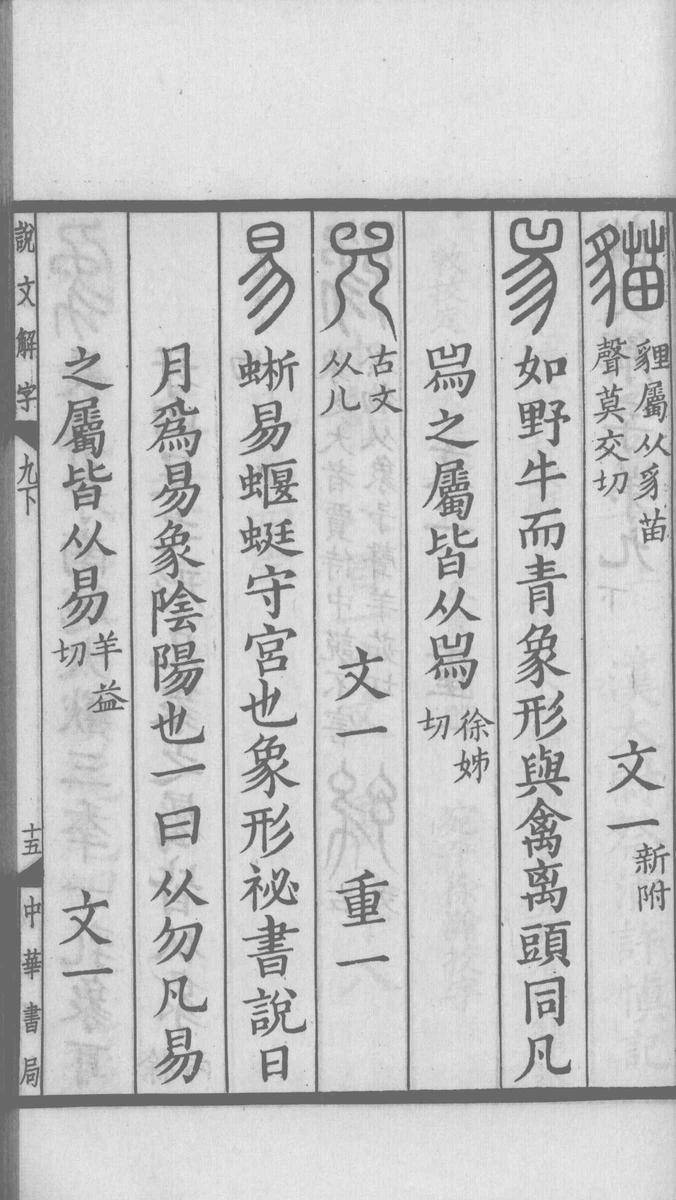 貓 貍屬从豸苗
聲莫交切 文一 新附
𤉡 如野牛而青象形與禽离頭同凡
𤉡之屬皆从𤉡 徐姊
切
兕 古文
从儿 文一 重一
易 蜥易蝘蜓守宮也象形祕書說日
月爲易象陰陽也一曰从勿凡易
之屬皆从易 羊益
切 文一
說文解字 九下 十五 中華書局